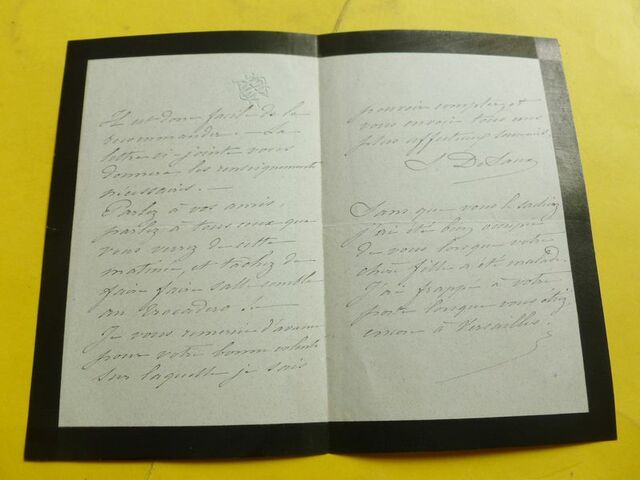 Il est donc facile de la
recommander. — La
lettre ci jointe vous
donnera les renseignements
nécessaires. —
Parlez à vos amis,
parlez à tous ceux que
vous verrez de cette
matinée, et tâchez de
faire faire salle comble
au Trocadéro !.
Je vous remercie d'avance
pour votre bonne volonté
sur laquelle je sais
pouvoir compter, et
vous envoie tous mes
plus affectueux souvenirs.
Sans que vous le sachiez
j'ai été bien occupée
de vous lorsque votre
chère fille a été malade.
J'ai frappé à votre
porte lorsque vous étiez
encore à Versailles.